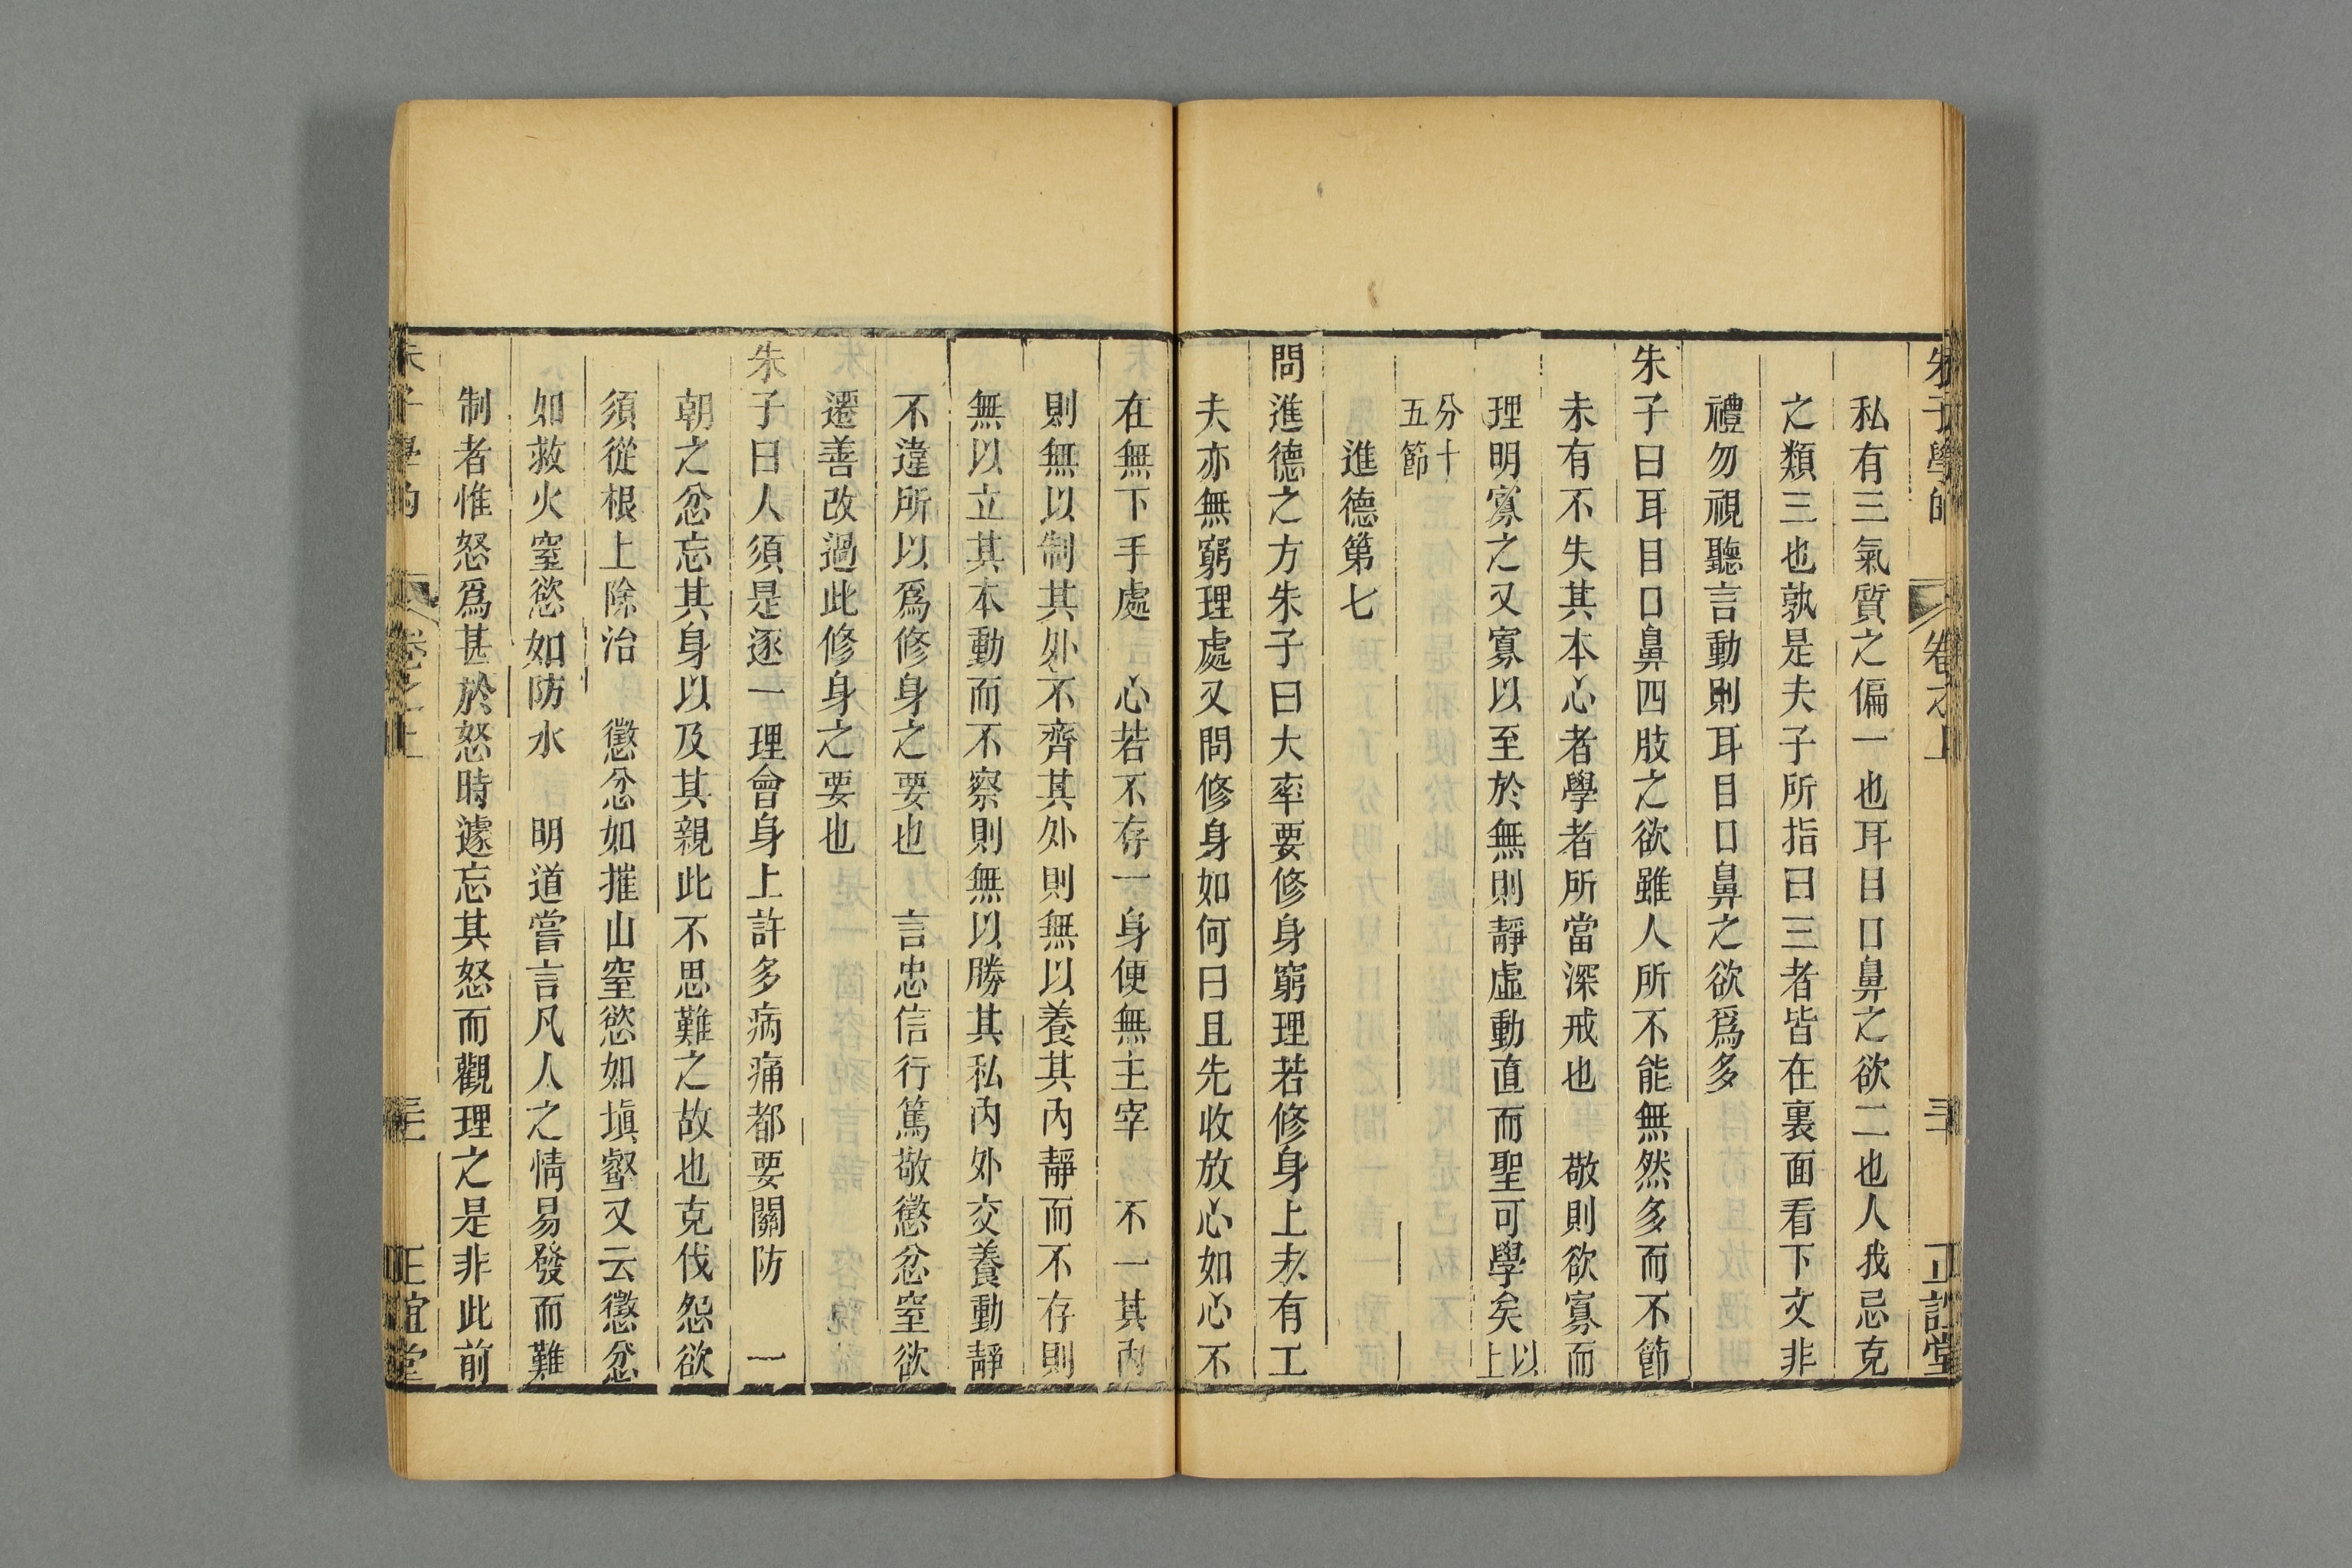 朱子學的 卷之上 三十 正誼堂
私有三氣質之偏一也耳目口鼻之欲二也人我忌克
之類三也孰是夫子所指曰三者皆在裏面看下文非
禮勿視聽言動則耳目口鼻之欲爲多
朱子曰耳目口鼻四肢之欲雖人所不能無然多而不節
未有不失其本心者學者所當深戒也　敬則欲寡而
理明寡之又寡以至於無則靜虛動直而聖可學矣以上
分十五節
進德第七
問進德之方朱子曰大率要修身窮理若修身上未有工
夫亦無窮理處又問修身如何曰且先收放心如心不
在無下手處　心若不存一身便無主宰　不一其內
則無以制其外不齊其外則無以養其內靜而不存則
無以立其本動而不察則無以勝其私內外交養動靜
不違所以爲修身之要也　言忠信行篤敬懲忿窒欲
遷善改過此修身之要也
朱子曰人須是逐一理會身上許多病痛都要關防　一
朝之忿忘其身以及其親此不思難之故也克伐怨欲
須從根上除治　懲忿如摧山窒慾如塡壑又云懲忿
如救火窒慾如防水　明道嘗言凡人之情易發而難
制者惟怒爲甚於怒時遽忘其怒而觀理之是非此前
朱子學的 卷之上 三十一 正誼堂